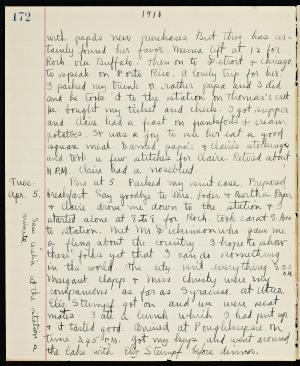 172
1910
with papa's new purchases. But this has cer-
tainly found her favor. Mama left at 12 for
Roch via Buffalo. Then on to Detroit & Chicago
to speak on Porto Rico. A lovely trip for her!
I packed my trunk or rather papa and I did
and he took it to the station on Thomas's cart
& bought my ticket and check. I got supper
and Claire had a feast on frankforts & cream
potatoes. It was a joy to see her eat a good
square meal. Darned papa's & Claire's stockings
and took a few stitches for Claire. Retired about
11 P.M. Claire had a nosebleed.
Tues.
Apr. 5.
Rose at 5. Packed my suit case. Prepared
breakfast. Say goodbye to Mrs. & Bertha. Papa
& Claire drove me down to the station & I
started alone at 8 for Roch. took car at 2
to station. Met Mr. Dickinson who gave me
a fling about the country. I hope to show
these folks yet that I can do something
in the world. the city isn't everything
Margaret Clapp & Miss Christy were my
companions as far as Syracuse. At Utica
Eliz. Stumpf got on and we were seat
mates. I ate a lunch which I had put up
& it tasted good. Arrived at Poughkeepsie on
time 3.45 P.M. Got my keys and went around
the lake with Eliz Stumpf before dinner.
Saw at the station a
minute.